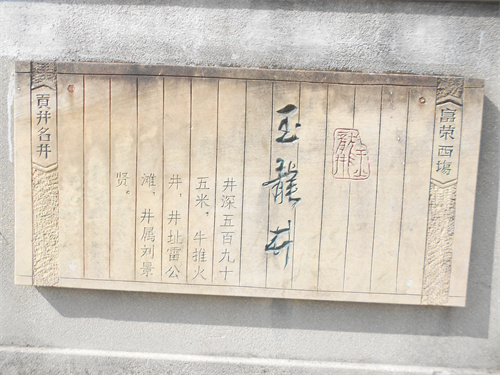 富荣西場
玉龍井
井深五百九十
五米，牛推火
井，井址雷公
滩，井属刘景
贤。
貢井名井